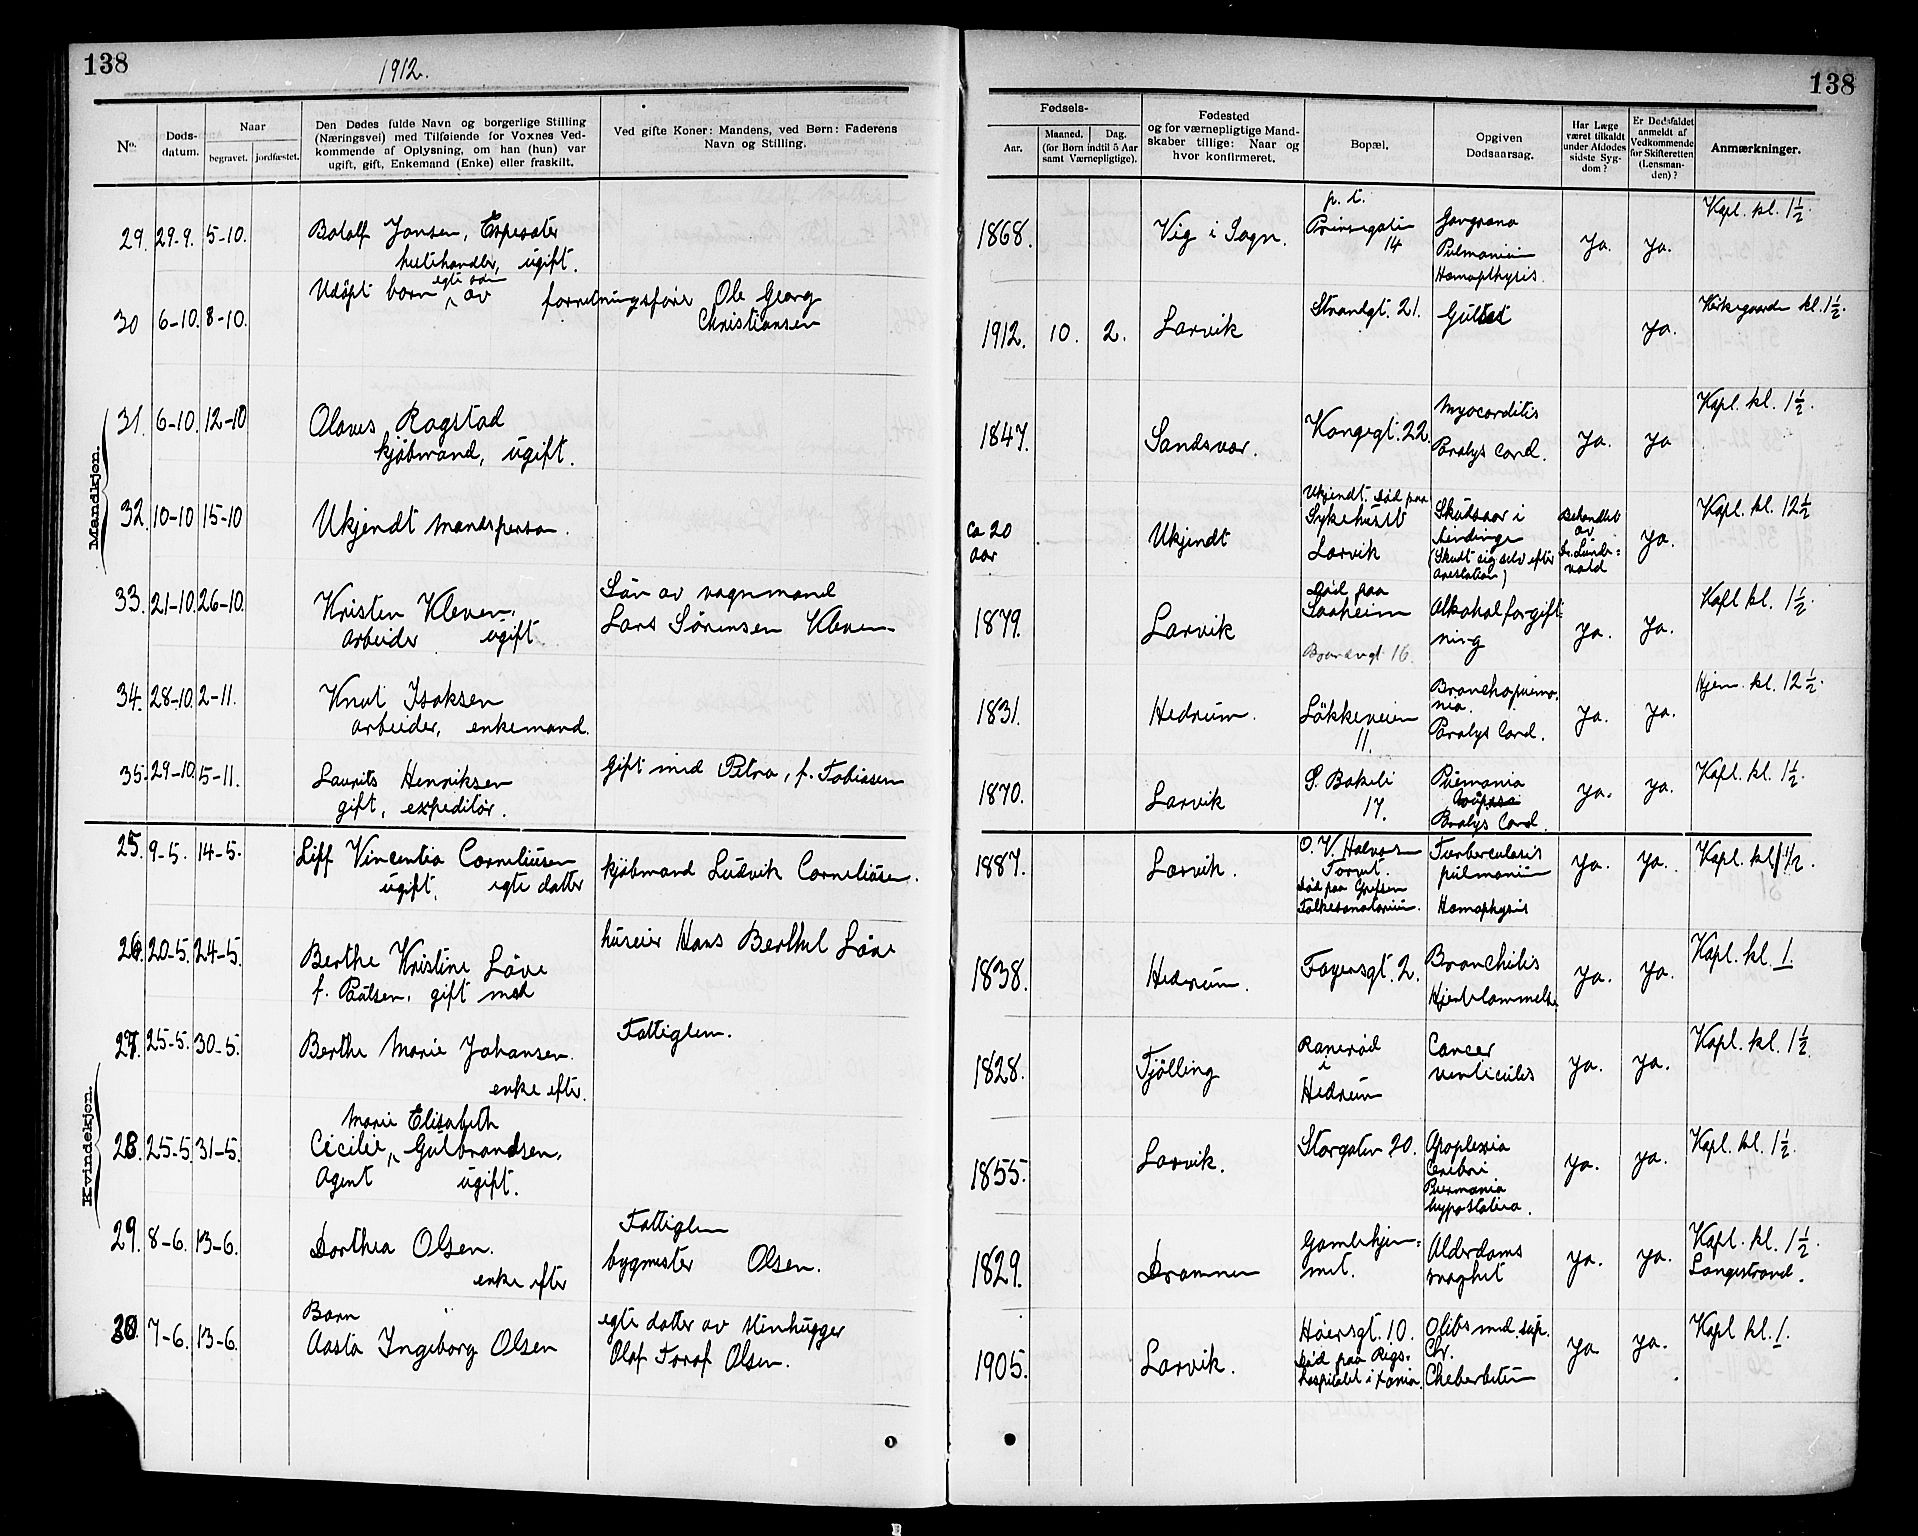 138
1912.
138
No.
Døds-
datum.
Naar
begravet. jordfæstet.
Den Dødes fulde Navn og borgerlige Stilling
(Næringsvei) med Tilføiende for Voxnes Ved-
kommende af Oplysning, om han (hun) var
ugift, gift, Enkemand (Enke) eller fraskilt.
Ved gifte Koner: Mandens, ved Børn: Faderens
Navn og Stilling.
Fødsels-
Aar.
Maaned. Dag.
(for Børn indtil 5 Aar
samt Værnepligtige).
Fødested
og for værnepligtige Mand-
skaber tillige: Naar og
hvor konfirmeret.
Bopæl.
Opgiven
Dødsaarsag.
Har Læge
været tilkaldt
under Afdødes
sidste Syg-
dom?
Er Dødsfaldet
anmeldt af
Vedkommende
for Skifteretten
(Lensman-
den)?
Anmærkninger.
Mandkjøn.
29. 29-9. 5-10.
Botolf Jansen, Espesæter
ugift.
1868.
Vig i Sogn.
p. t.
Prinsegaten
14
Pulmonum
Hæmopthysis
Ja.
Ja.
Kapl. kl. 1 1/2.
30 6-10. 8-10.
Udøpt barn egte søn av
forretningsfører Ole Georg
Christiansen
1912. 10. 2.
Larvik
Strandgt. 21.
Gulsot
Ja.
Kirkegaarden kl. 1 1/2.
31. 6-10. 12-10
Olaves Rogstad
kjøbmand, ugift.
1847.
Sandsvær.
Kongegt. 22.
Myocarditis
Paralys Cord.
Ja.
Ja
Kapl. kl. 1 1/2.
32. 10-10 15-10
Ukjendt mandsperson.
ca 20
aar
Ukjendt
Ukjendt. Død paa
Sykehuset
Larvik
Skudsaar i
tindingen
(Skudt sig selv efter
arestation)
Behandlet
av
Dr. Lunde-
vold
Ja.
Kapl. kl. 12 1/2
33. 21-10. 26-10.
Kristen Kleven.
arbeider ugift
Søn av vognmand
Lars Sørensen Kleven
1879.
Larvik
Død paa
Saaheim
16.
Alkoholforgift
ning
Ja.
Ja.
Kapl kl. 1 1/2.
34. 28-10. 2-11.
Knut Isaksen
arbeider, enkemand.
1831.
Hedrum.
Løkkeveien
11.
Bronchopnemo-
nia.
Paralys Cord.
Ja.
Ja.
Hjem. kl. 12 1/2.
35. 29-10. 5-11.
Laurits Henriksen
gift, expeditør.
gift med Petra, f. Tobiasen
1870.
Larvik
S. Bakeli
17.
Pnemonia
Paralys Cord.
Ja.
Ja.
Kapl. kl. 1 1/2.
Kvindekjøn.
25. 9-5. 14-5.
Liff Vincentia Corneliusen
ugift. egte datter
kjøbmand Ludvik Corneliusen.
1887.
Larvik.
O. V. Halvors
Torvet.
Død paa Grefsen
Folkesanatorium.
Turberculosis
pulmonum
Hæmophysis
Ja.
Ja.
Kapl. kl 1 1/2.
26. 20-5. 24-5.
Berthe Kristine Løve
f. Paulsen, gift med
huseier Hans Berthel Løve
1838.
Hedrum.
Foyensgt. 2.
Bronchitis
Hjertelammelse
Ja.
Ja.
Kapl. kl. 1.
27. 25-5. 30-5.
Berthe Marie Johansen.
enke efter.
Fattiglem.
1828.
Tjølling
Ranerød
i
Hedrum
Cancer
ventriculus
Ja.
Ja.
Kapl. kl. 1 1/2.
28. 25-5. 31-5.
Marie Elisabeth
Cicilie Gulbrandsen,
Agent ugift.
1855.
Larvik.
Storgaten 20.
Apoplexia
Cerebri
Pnemonia
hypostatica.
Ja.
Ja.
Kapl. kl. 1 1/2
29. 8-6. 13-6.
Dorthea Olsen.
enke efter
Fattiglem
bygmester Olsen.
1829.
Drammen
Gamlehjem-
met.
Alderdoms
svaghet
Ja.
Ja.
Kapl. kl. 1 1/2.
Langestrand.
30. 7-6. 13-6.
Barn
Aasta Ingeborg Olsen
egte datter av stenhugger
Olaf Toraf Olsen.
1905.
Larvik.
Høiersgt. 10.
Død paa Rigs-
hospitalet i Xania.
Otitis med. sup.
Chr.
Ja
Ja.
Kapl kl. 1.